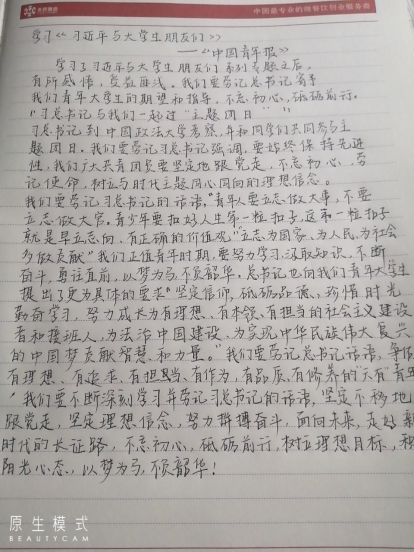 中国最专业的
学习《习近平与大学生朋友们》
——《中国青年报》
学习了习近平与大学生朋友们系列专题之后,
有所感悟,受益匪浅。我们要牢记总书记对
我们青年大学生的期望和指导,不忘初心,砥砺前行。
"习总书记与我们一起过"主题团日""
习总书记到中国政法大学考察,并和同学们共同参与主
题团日。我们要牢记习总书记强调,要始终保持先进
性,我们广大共青团员要坚定地跟党走,不忘初心,牢
记使命,树立与时代主题同心同向的理想信念。
我们要牢记习总书记的话语,"青年人要立志做大事,不要
立志做大官。青少年要扣好人生第一粒扣子,这第一粒扣子
就是早立志向、有正确的价值观""立志为国家、为人民、为社会
多做贡献"我们正值青年时期,要努力学习,汲取知识,不断
奋斗,勇往直前,以梦为马,不负韶华,总书记也向我们青年大学生
提出了更为具体的要求"坚定信仰,砥砺品德,珍惜时光
勤奋学习,努力成长为有理想、有本领、有担当的社会主义建设
者和接班人,为法治中国建设、为实现中华民族伟大复兴
的中国梦贡献智慧和力量。"我们要牢记总书记话语,争做
有理想、有追求、有担当、有作为、有品质、有修养的"六有"青年
我们要不断深刻学习并牢记习总书记的话语,坚定不移地
跟党走,坚定理想信念,努力拼搏奋斗,面向未来,走好新
时代的长征路,不忘初心,砥砺前行,树立理想目标,
阳光心态,以梦为马,不负韶华!
原生模式
BEAUTYCAM